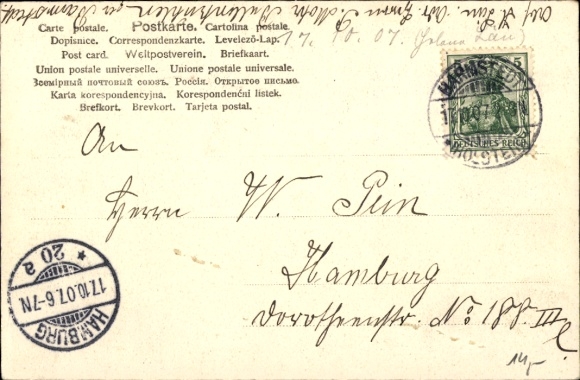 Carte postale. Postkarte. Cartolina postale.
Dopisnice. Correspondenzkarte. Levelező-Lap.
Post card. Weltpostverein. Briefkaart.
Union postale universelle. Unione postale universale.
Всемірный почтовый союзъ. Россія. Открытое письмо.
Karta korespondencyjna. Korespondenční listek.
Brefkort. Brevkort. Tarjeta postal.
17. 10. 07.
5
BARMSTEDT
DEUTSCHES REICH
(HOLSTEIN)
An
Herrn W. Pein
Hamburg
Dorotheenstr. No 188 III
HAMBURG
17.10.07. 6-7N
* 20 a
14,-